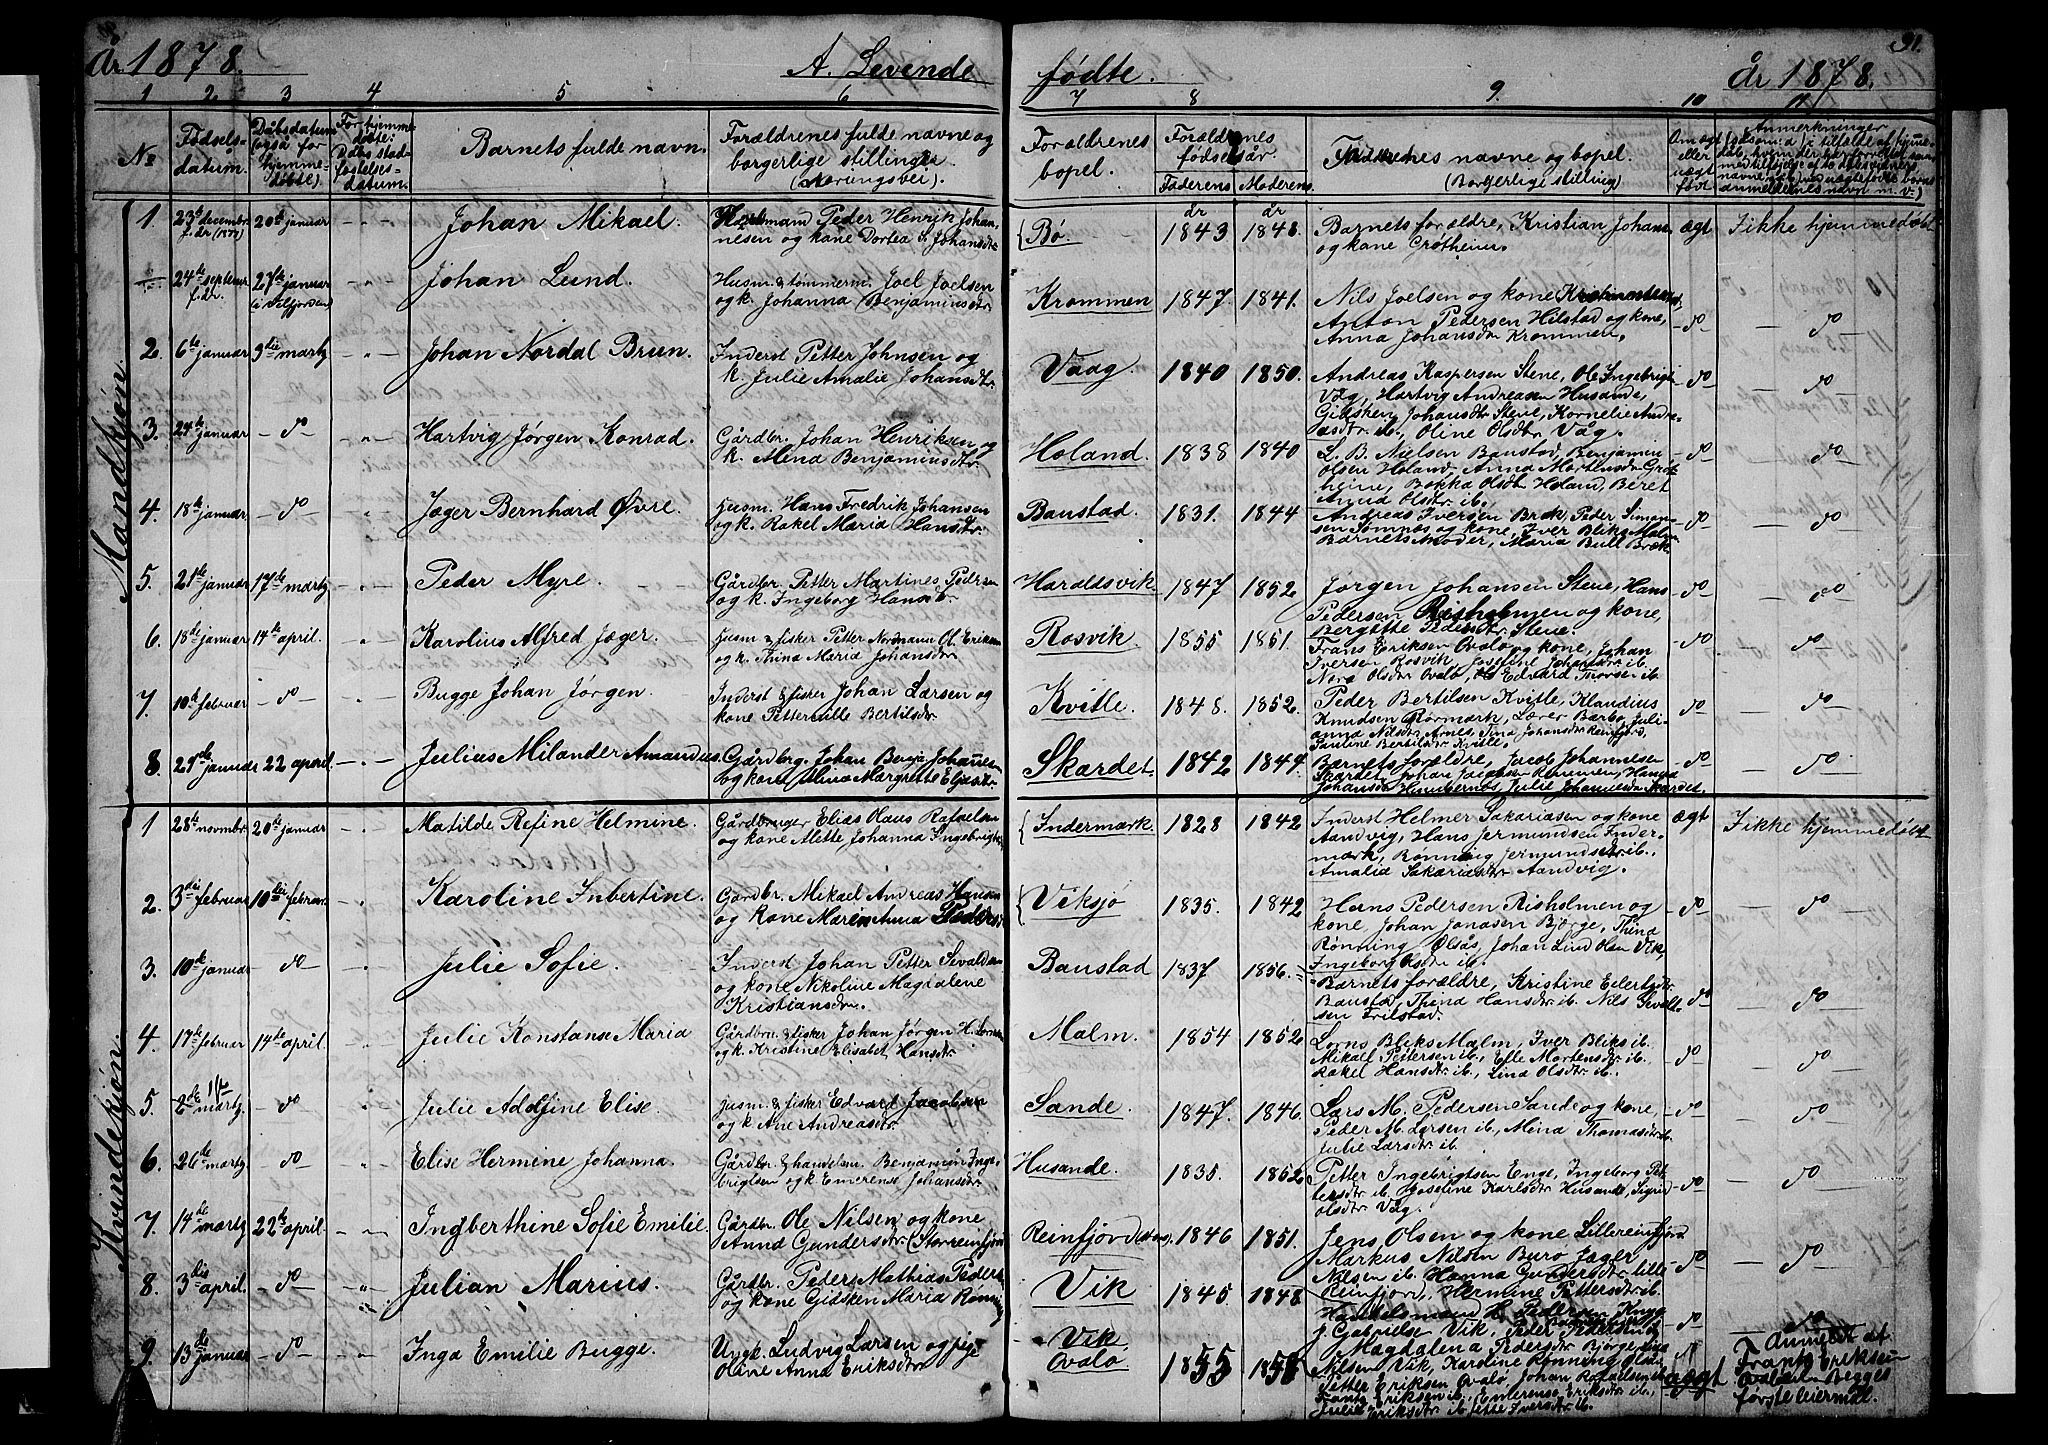 År 1878. A. Levende fødte. År 1878. 91.
1 2 3 4 5 6 7 8 9. 10 11
№ Fødsels-datum. Dåbsdatum (også for hjemme-døbte) For hjemme-døbte: Dåbs stad-festelses-datum. Barnets fulde navn. Forældrenes fulde navne og borgerlige stilling (næringsvei). Forældrenes bopel. Forældrenes fødselsår. Faderens Moderens Faddrenes navne og bopel. (Borgerlige stilling) Om ægte eller uægte født Anmerkninger
Mandkjøn.
1. 23de decembr. f. år (1877) 20de januar Johan Mikael. Peder Henrik Johannesen og kone Dortea Johansdtr. Bø. år 1843 år 1848 Barnets forældre, Kristian Johans. og kone Grøtheim. ægt Ikke hjemmedøbt
24de septembr. f. år. 27de januar (i Velfjorden) Johan Lund. Husm. & tømmerm. Joel Joelsen og k. Johanna Benjaminsdtr. Krommen 1847. 1841. Nils Joelsen og kone
Anton Pedersen Hilstad og kone, Anna Johansdtr Krommen. do do
2. 6te januar 3die marts Johan Nordal Brun. Inderst Petter Johnsen og k. Julie Amalie Johansdtr. Vaag 1840 1850. Andreas Kaspersen Stene, Ole Ingebrigts. Våg, Hartvig Andreasen Husande, Gidsken Johansdtr Stene, Kornelie Andreasdtr ib., Oline Olsdtr Våg. do do
3. 24de januar do Hartvig Jørgen Konrad. Gårdbr. Johan Henriksen og k. Mina Benjaminsdtr. Holand. 1838 1840 L. B. Nielsen Baustad, Benjamin Olsen Holand, Anna Mortensdtr Grøtheim, Bokka Olsdtr Holand, Beret Anna Olsdtr ib. do do
4. 18de januar do Jæger Bernhard Øvre. Husm. Hans Fredrik Johansen og k. Rakel Maria Hansdtr. Baustad. 1831. 1844 Andreas Iversen Bræk, Peder Simonsen Sømnæs og kone, Iver Bliks Malm, Barnets Moder, Maria Bull Bræk do do
5. 21de januar 17de marts Peder Myre. Gårdbr. Petter Martines Pedersen og k. Ingeborg Hansdtr. Haraldsvik 1847 1852 Jørgen Johansen Stene, Hans Pedersen Risholmen og kone, Bergitte Pedersdtr Stene. do do
6. 18de januar 14de april. Karolius Alfred Jæger. Husm. & fisker Petter Normann Ol. Eriksen og k. Thina Maria Johansdtr. Rosvik 1855 1851. Frans Eriksen Ovalø og kone, Johan Iversen Rosvik, Josefine Johansdtr ib. Nora Olsdtr Ovalø, Ole Edvard Thorsen ib. do do
7. 10de februar do Bugge Johan Jørgen. Inderst & fisker Johan Larsen og kone Pettermille Bertilsdtr. Kvitle. 1848. 1852. Peder Bertilsen Kvitle, Klaudius Knudsen Rørmark, Lærer Barbo, Juliana Nilsdtr Arnes, Tina Johansdtr Reinfjord, Pauline Bertilsdtr Kvitle. do do
8. 29de januar 22 april. Julius Milander Amandus. Gårdbrg. Johan Benja. Johannesen og kone Margrette Eliasdtr. Skardet. 1842 1847. Barnets forældre, Jacob Johannesen Skardet, Johan Jacobsen Remmen, Hanna Johansdtr Hummernæs, Julie Johansdtr Skardet. do do
Kvindekjøn.
1 28de novmbr. 20de januar Matilde Refine Helmine. Gårdbruger Elias Olaus Rafaelsen og kone Alette Johanna Ingebrigtsdtr. Indermark. 1828 1842 Inderst Helmer Sakariasen og kone Aandvig, Hans Jermundsen Indermark, Rønnaug Jermundsdtr ib., Amalia Sakariasdtr Aandvig. ægt Ikke hjemmedøbt
2. 3die februar 10de februar. Karoline Inbertine. Gårdbr. Mikael Andreas Hansen og kone Maren Anna Pedersdtr Viksjø 1835. 1842 Hans Pedersen Risholmen og kone, Johan Jonasen Bjørge, Thina Rønning Olsås, Johan Lind Olsen Vik, Ingeborg Olsdtr ib. do do
3. 10de januar do Julie Sofie. Inderst Johan Petter Sivaldsen og kone Nikoline Magdalene Kristiansdtr. Baustad 1837 1856. Barnets forældre, Kristine Eilertsdtr Baustad, Thina Hansdtr ib. Nils Sivaldsen Frilstad. do do
4. 17de februar 14de april. Julie Konstanse Maria Gårdbr. & fisker Johan Jørgen H. Lorns. og k. Kristine Elisabet Hansdtr. Malm. 1854 1852 Lorns Bliks Malm, Iver Bliks ib. Mikael Pettersen ib., Elle Mortensdtr ib. Rakel Hansdtr ib., Lina Olsdtr. ib. do do
5. 2de marts do Julie Adolfine Elise. Husm. & fisker Edvard Jacobsen og k. Ane Andreasdtr. Sande. 1847. 1846. Lars M. Pedersen Sande og kone, Peder M. Larsen ib., Mina Thomasdtr ib. Julie Larsdtr ib. do do
6. 26de marts do Elise Hermine Johanna. Gårdbr. & handelsm. Benjamin Ingebrigtsen og k. Emerense Johansdtr. Husande. 1835. 1852 Petter Ingebrigtsen Enge, Ingeborg Pettersdtr ib. Josefine Karlsdtr Husande, Sigrid Olsdtr Våg. do do
7. 14de marts 22de april. Ingberthine Sofie Emilie. Gårdbr. Ole Nilsen og kone Anna Gundersdtr (Storreinfjord) Reinfjord 1846 1851. Jens Olsen og kone Lillereinfjord Markus Nilsen Burø, Jæger Nilsen ib. Hanna Gundersdtr Lille Reinfjord, Hermine Pettersdtr. ib. do do
8. 3die april. do Julian Marius. Gårdbr. Peder Mathias Peders. og kone Gidsken Maria Rønning Vik 1845. 1848 Handelsmand H. Pedersen
J. Gabrielsen Vik, Peder Magdalena Pedersdtr Bjørge do do
9. 13de januar do Inga Emilie Bugge. Ungk. Ludvig Larsen og pige Oline Anna Eriksdtr. Vik. Ovalø 1855 Nilsen Vik, Karoline Rønning Olsås, Petter Eriksen Ovalø, Johan Rafaelsen ib. Frants Eriksen ib., Emerense Eriksdtr ib., Julie Eriksdtr. ib. Iversdtr. ib. uægt Anmeldt af Frants Eriksen Ovalø. Begges første leiermål.